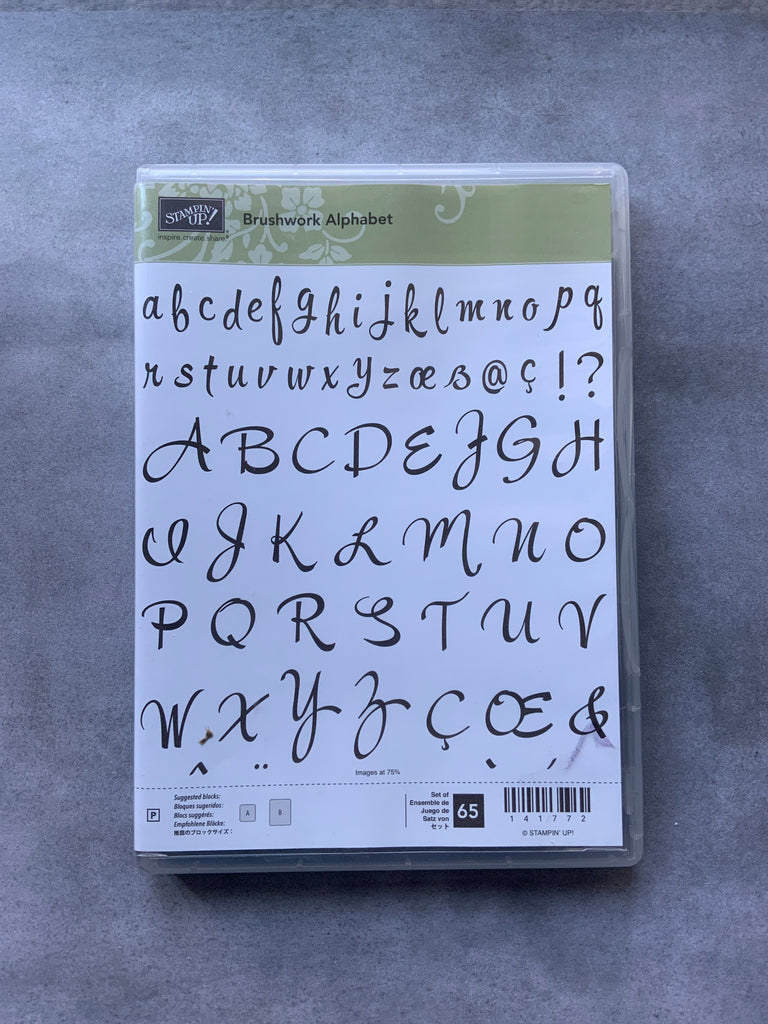 STAMPIN' UP!
inspire.create.share.®
Brushwork Alphabet
a b c d e f g h i j k l m n o p q
r s t u v w x y z œ ß @ ç ! ?
A B C D E F G H
I J K L M N O
P Q R S T U V
W X Y Z Ç Œ &
^ ¨ ` ´
Images at 75%
P
Suggested blocks:
Bloques sugeridos:
Blocs suggérés:
Empfohlene Blöcke:
推奨のブロックサイズ：
A B
Set of
Ensemble de
Juego de
Satz von
セット
65
141772
© STAMPIN' UP!